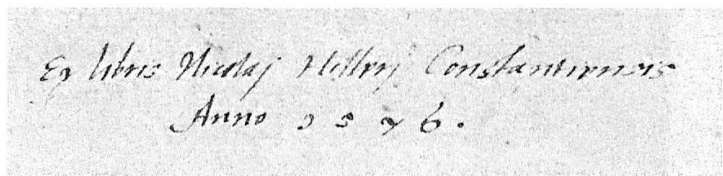 Ex libris Nicolaj Constantiensis
Anno 1576.